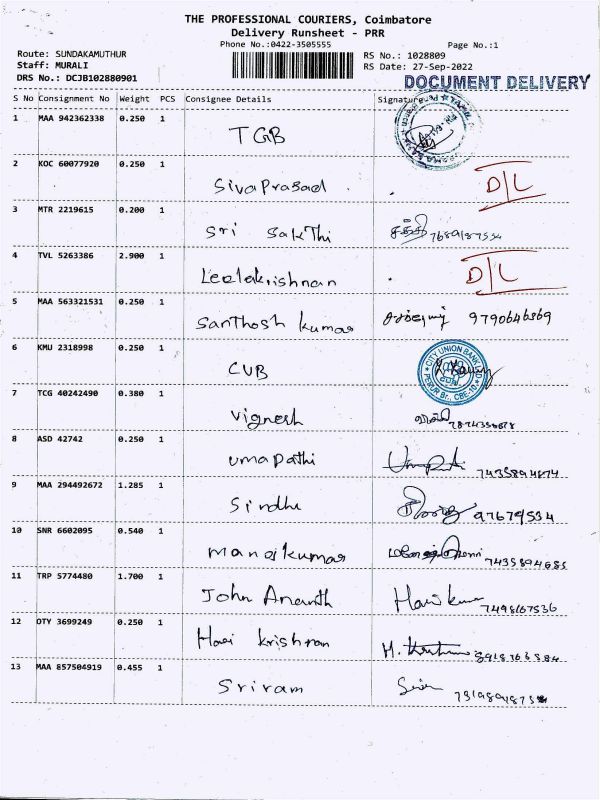 THE PROFESSIONAL COURIERS, Coimbatore
Delivery Runsheet - PRR
Phone No.:0422-3505555
Page No.:1
Route: SUNDAKAMUTHUR
RS No.: 1028809
Staff: MURALI
RS Date: 27-Sep-2022
DRS No.: DCJB102880901
DOCUMENT DELIVERY
S No Consignment No Weight PCS Consignee Details Signature
1 MAA 942362338 0.250 1 TGB
2 KOC 60077920 0.250 1 Sivaprasad D/L
3 MTR 2219615 0.200 1 Sri Sakthi சக்தி
4 TVL 5263386 2.900 1 Leelakrishnan D/L
5 MAA 563321531 0.250 1 Santhosh kumar 9790646869
6 KMU 2318998 0.250 1 CUB CITY UNION BANK PERUR Br., CBE-10
7 TCG 40242490 0.380 1 Vignesh
8 ASD 42742 0.250 1 umapathi
9 MAA 294492672 1.285 1 Sindhu
10 SNR 6602095 0.540 1 Manojkumar
11 TRP 5774480 1.700 1 John Ananth Hari kumar 7498167536
12 OTY 3699249 0.250 1 Hari krishnan
13 MAA 857504919 0.455 1 Sriram